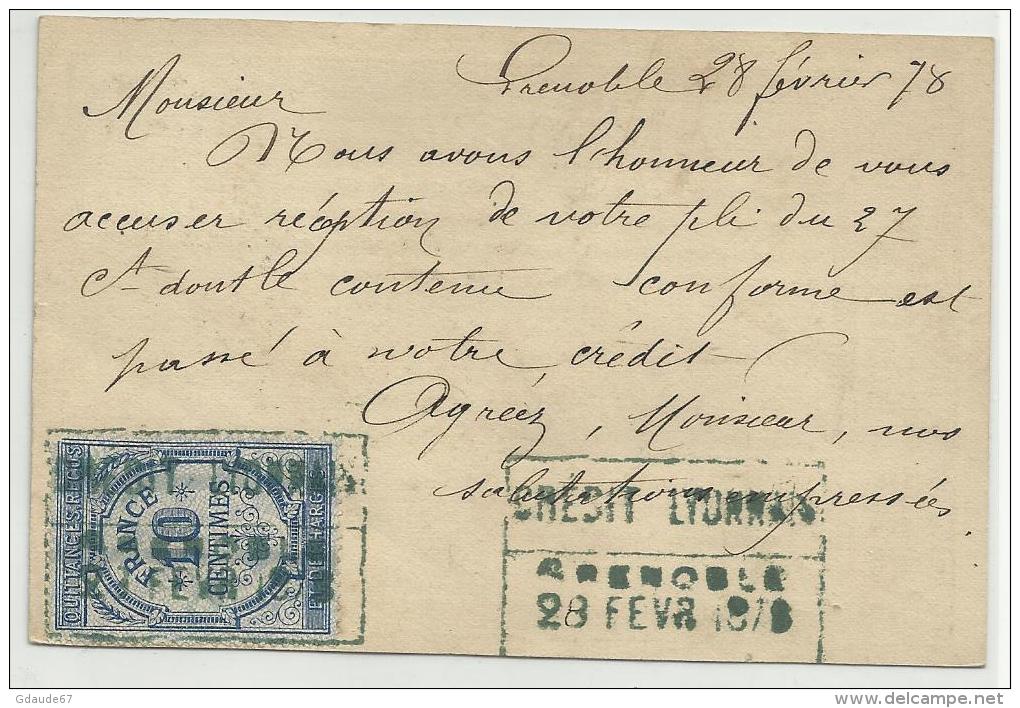 Grenoble 28 février 78
Monsieur
Nous avons l'honneur de vous
accuser réception de votre pli du 27
Ct dont le contenu conforme est
passé à votre crédit
Agréez, Monsieur, nos
salutations empressées
QUITTANCES, REÇUS
FRANCE
10
CENTIMES
ET DÉCHARGES
CRÉDIT LYONNAIS
GRENOBLE
28 FEVR 1878
Gdaude67
delcampe.net